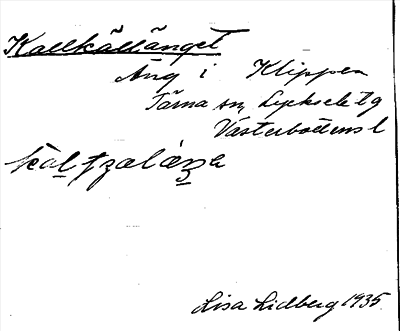 Kallkällänget
Äng i Klippen
Tärna sn, Lycksele tg
Västerbottens l
Lisa Lidberg 1935